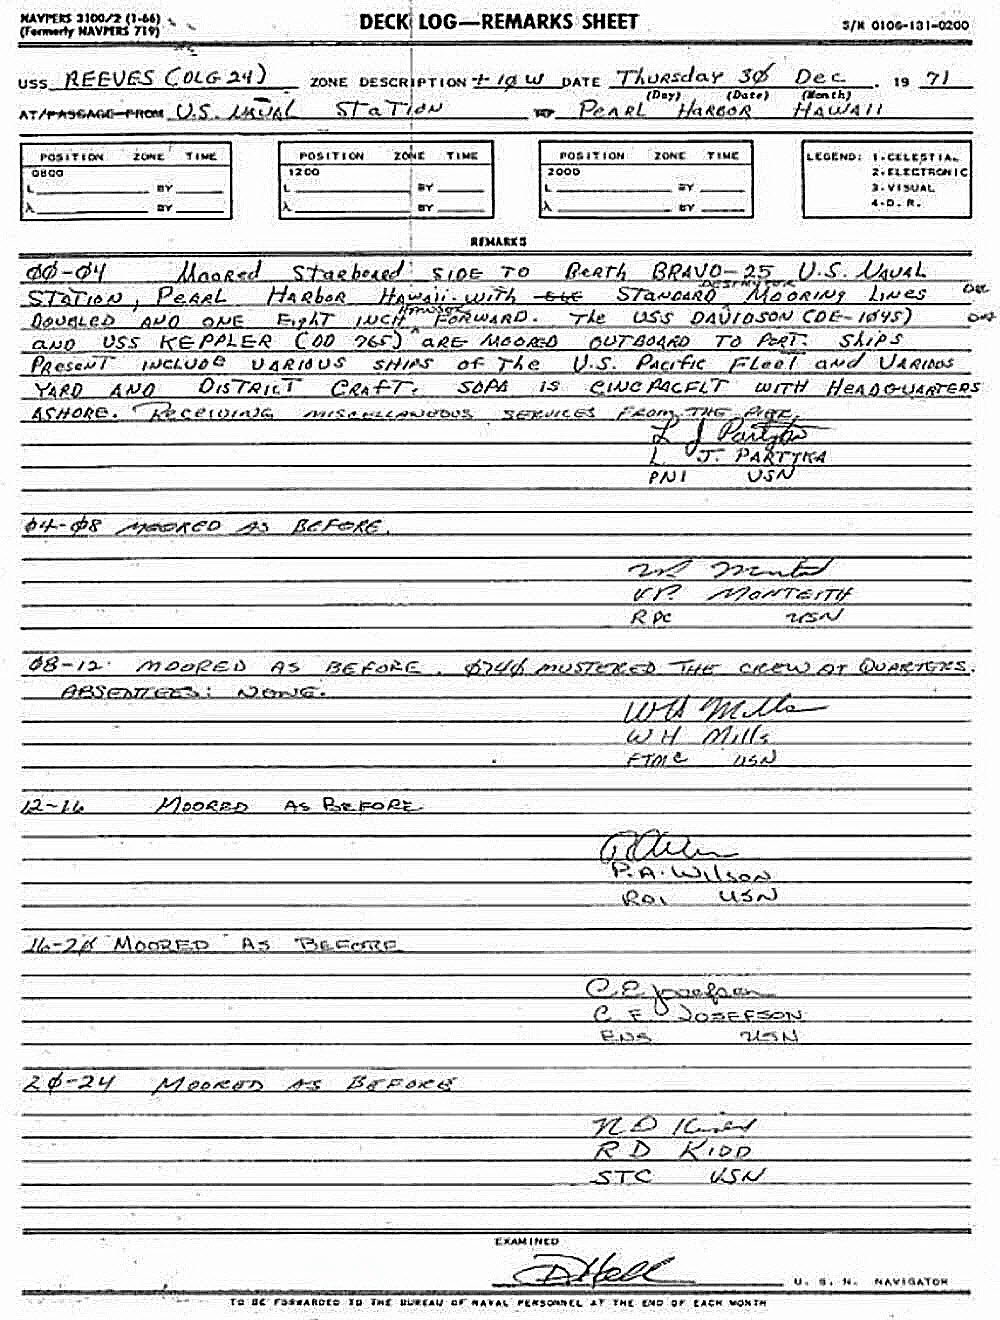 NAVPERS 3100/2 (1-66)
(Formerly NAVPERS 719)
DECK LOG—REMARKS SHEET
S/N 0106-131-0200
USS REEVES (DLG 24) ZONE DESCRIPTION + 10 W DATE Thursday 3Ø Dec. 19 71
(Day) (Date) (Month)
AT/PASSAGE FROM U.S. NAVAL STATION TO PEARL HARBOR HAWAII
POSITION ZONE TIME
0800
L BY
λ BY
POSITION ZONE TIME
1200
L BY
λ BY
POSITION ZONE TIME
2000
L BY
λ BY
LEGEND: 1-CELESTIAL
2-ELECTRONIC
3-VISUAL
4-D. R.
REMARKS
ØØ-Ø4 Moored Starboard SIDE TO Berth BRAVO-25 U.S. NAVAL
STATION, PEARL HARBOR HAWAII WITH STANDARD DESTROYER MOORING LINES
DOUBLED AND ONE Eight INCH HAWSER FORWARD. The USS DAVIDSON (DE-1045)
AND USS KEPPLER (DD 765) ARE MOORED OUTBOARD TO PORT. Ships
Present INCLUDE VARIOUS SHIPS OF The U.S. Pacific Fleet and Various
YARD AND DISTRICT CRAFT. SOPA IS CINCPACFLT WITH HEADQUARTERS
ASHORE. RECEIVING MISCELLANEOUS SERVICES FROM THE PIER.
L J Partyka
L. J. PARTYKA
PN1 USN
Ø4-Ø8 MOORED AS BEFORE.
V.P. MONTEITH
RDC USN
Ø8-12 MOORED AS BEFORE. Ø74Ø MUSTERED THE CREW AT QUARTERS.
ABSENTEES: NONE.
WH Mills
W H Mills
FTMC USN
12-16 MOORED AS BEFORE
P.A. Wilson
RD1 USN
16-2Ø MOORED AS BEFORE
C E Josefson
C E JOSEFSON
ENS USN
2Ø-24 MOORED AS BEFORE
R D Kidd
R D KIDD
STC USN
EXAMINED
U. S. N. NAVIGATOR
TO BE FORWARDED TO THE BUREAU OF NAVAL PERSONNEL AT THE END OF EACH MONTH